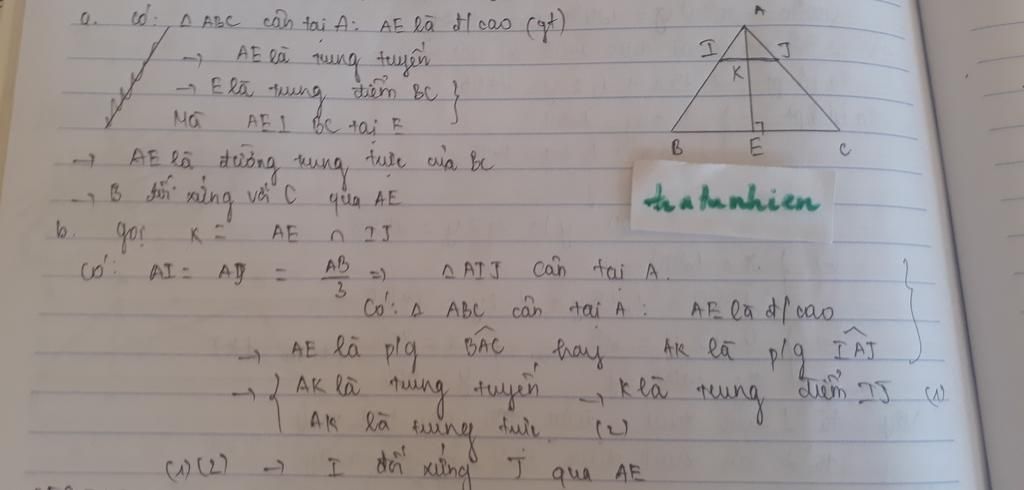 a. Có: Δ ABC cân tại A: AE là đ/cao (gt)
→ AE là trung tuyến
→ E là trung điểm BC
Mà AE ⊥ BC tại E
→ AE là đường trung trực của BC
→ B đối xứng với C qua AE
b. gọi K = AE ∩ IJ
Có: AI = AJ = AB/3 => Δ AIJ cân tại A.
Có: Δ ABC cân tại A: AE là đ/cao
→ AE là p/g BAC hay AK là p/g IAJ
→ { AK là trung tuyến → K là trung điểm IJ (1)
AK là trung trực (2)
(1)(2) → I đối xứng J qua AE
A
I J
K
B E C
tratunhien